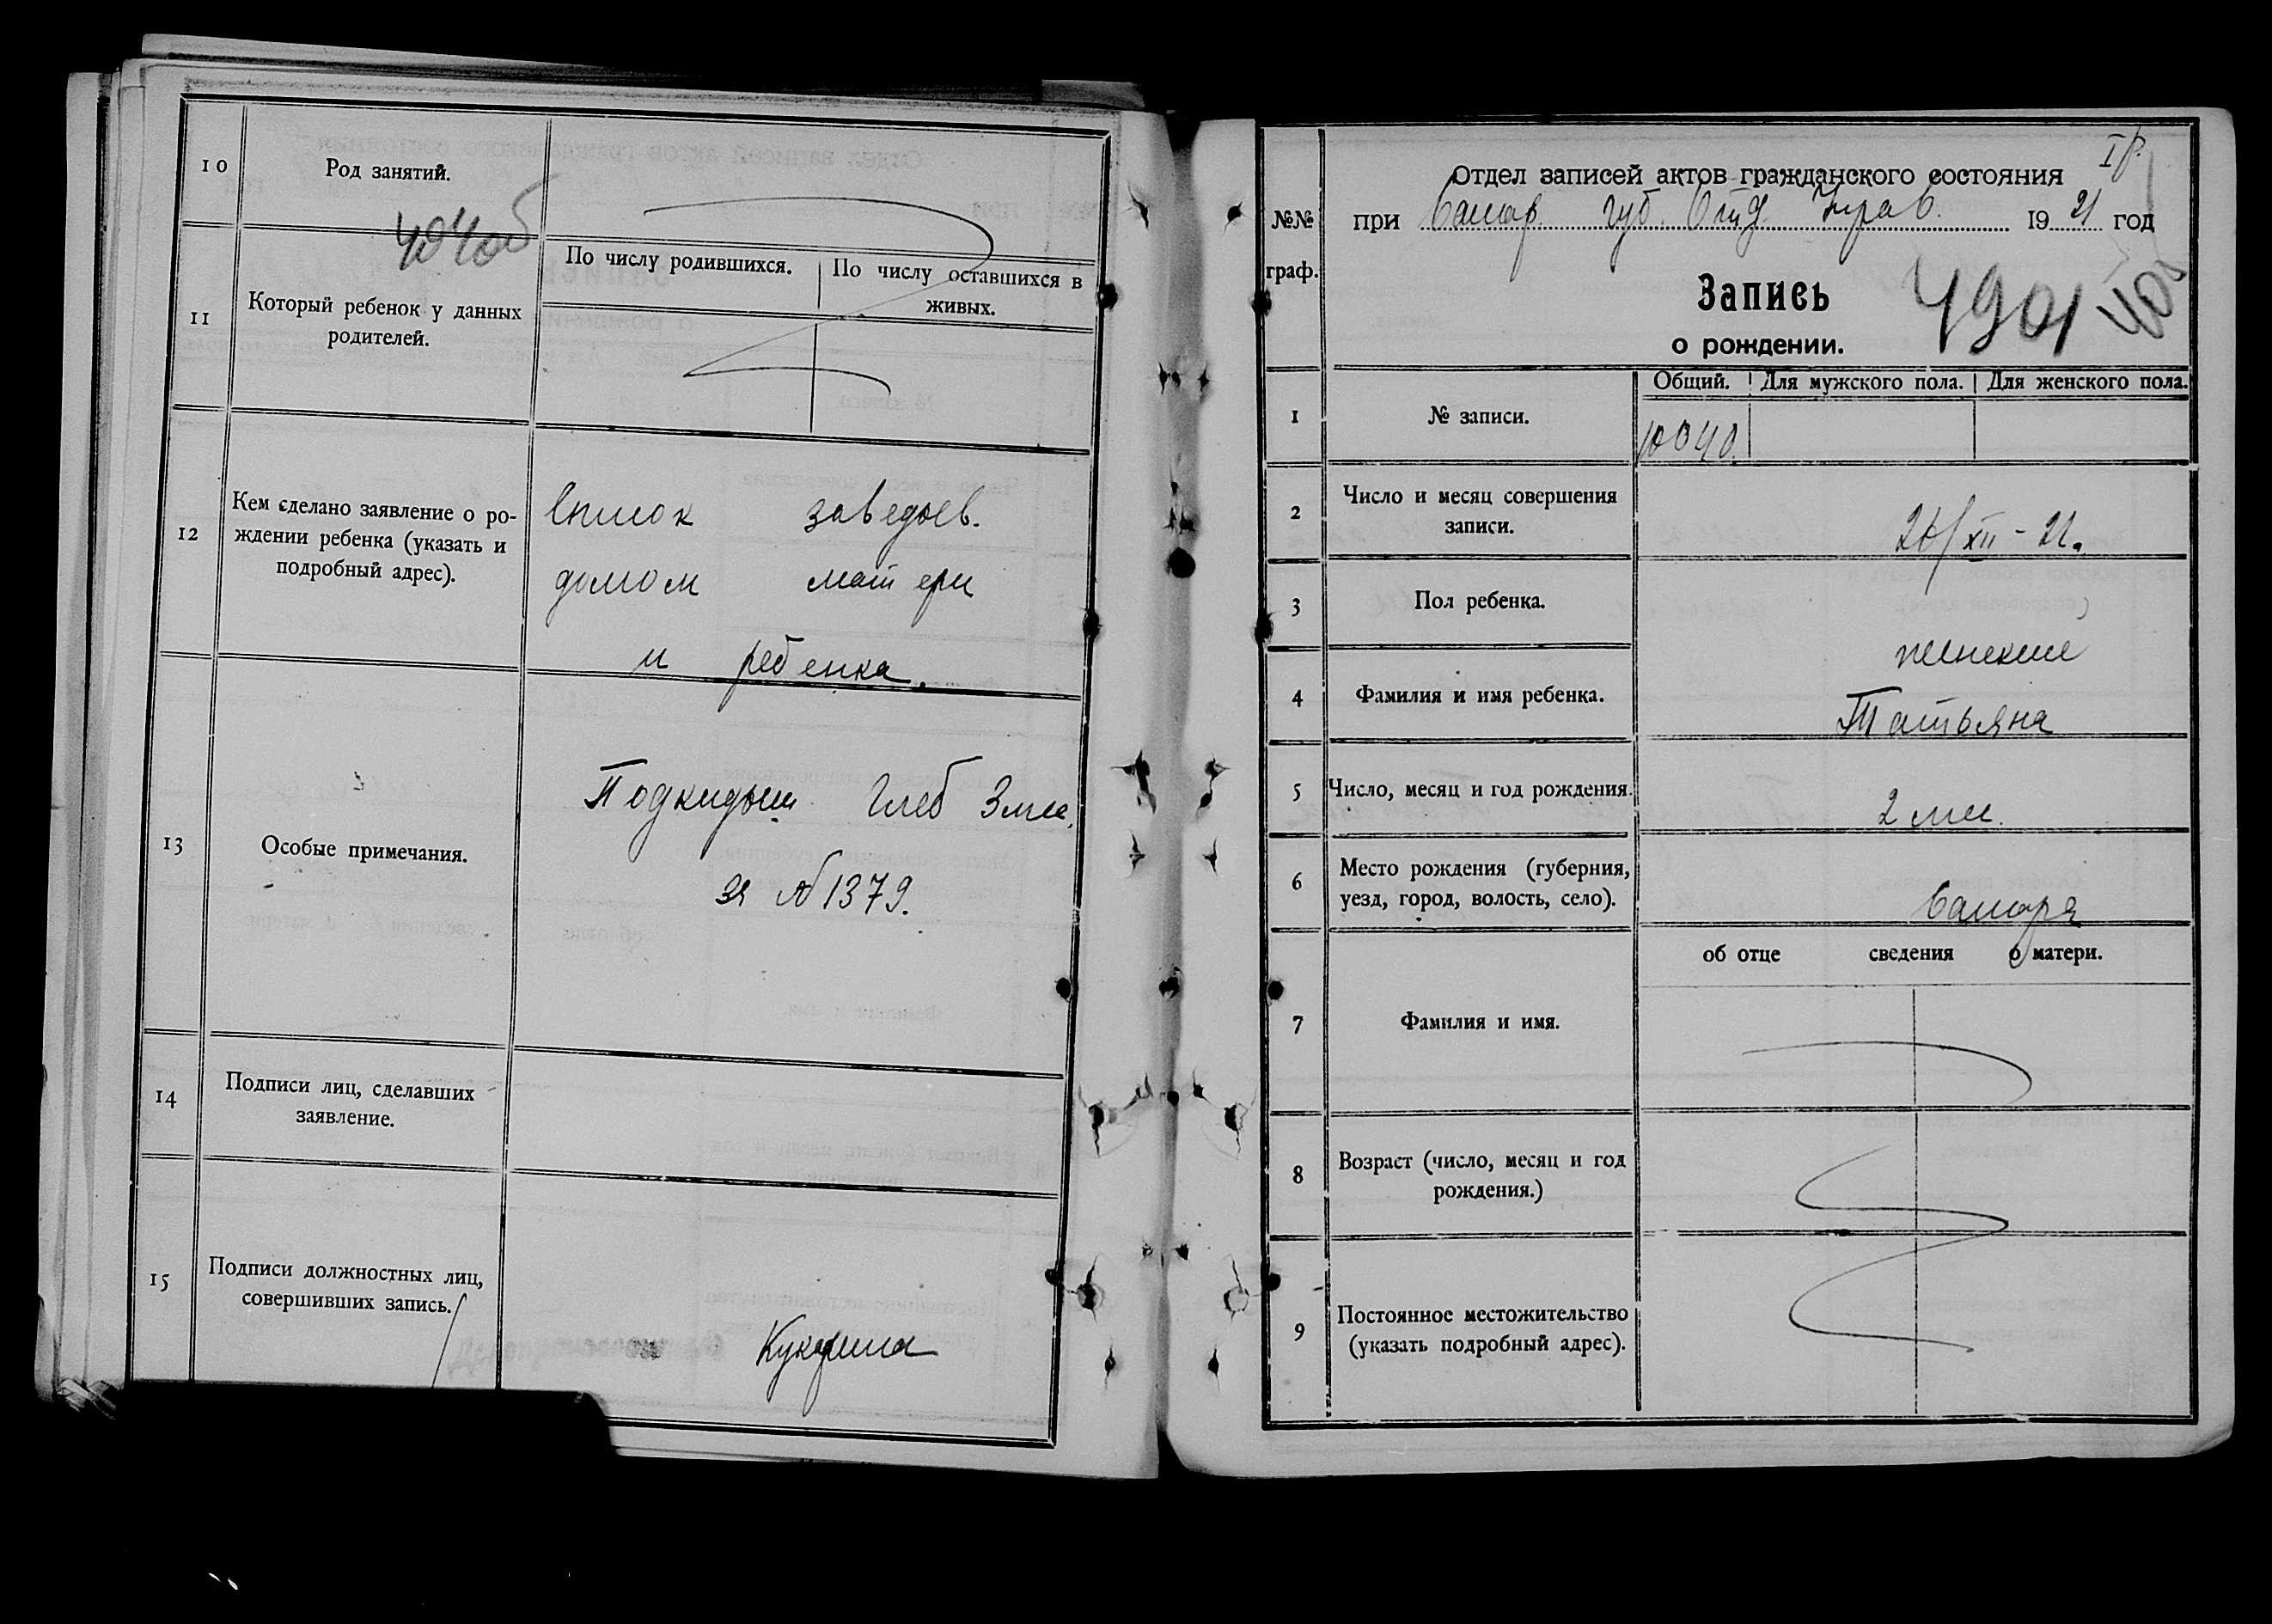 10
Род занятий.
11
Который ребенок у данных
родителей.
По числу родившихся.
По числу оставшихся в
живых.
12
Кем сделано заявление о ро-
ждении ребенка (указать и
подробный адрес).
Список заведыв.
домом матери
и ребенка.
13
Особые примечания.
Подкидыш Глеб 3 мес.
за №1379.
14
Подписи лиц, сделавших
заявление.
15
Подписи должностных лиц,
совершивших запись.
№№
граф.
Отдел записей актов гражданского состояния
при Самар. Губ. Отд. Управ. 1921 год
Запись
о рождении.
1
№ записи.
Общий. Для мужского пола. Для женского пола.
10040.
2
Число и месяц совершения
записи.
/XII-21.
3
Пол ребенка.
женский
4
Фамилия и имя ребенка.
Татьяна
5
Число, месяц и год рождения.
2 мес.
6
Место рождения (губерния,
уезд, город, волость, село).
Самара
об отце сведения о матери.
7
Фамилия и имя.
8
Возраст (число, месяц и год
рождения.)
9
Постоянное местожительство
(указать подробный адрес).